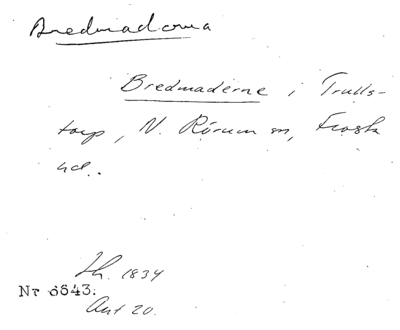 Bredmadorna
Bredmaderne i Trulls-
torp, N. Rörum sn, Frosta
hd.
Lh. 1834
Nr 6643.
Akt 20.